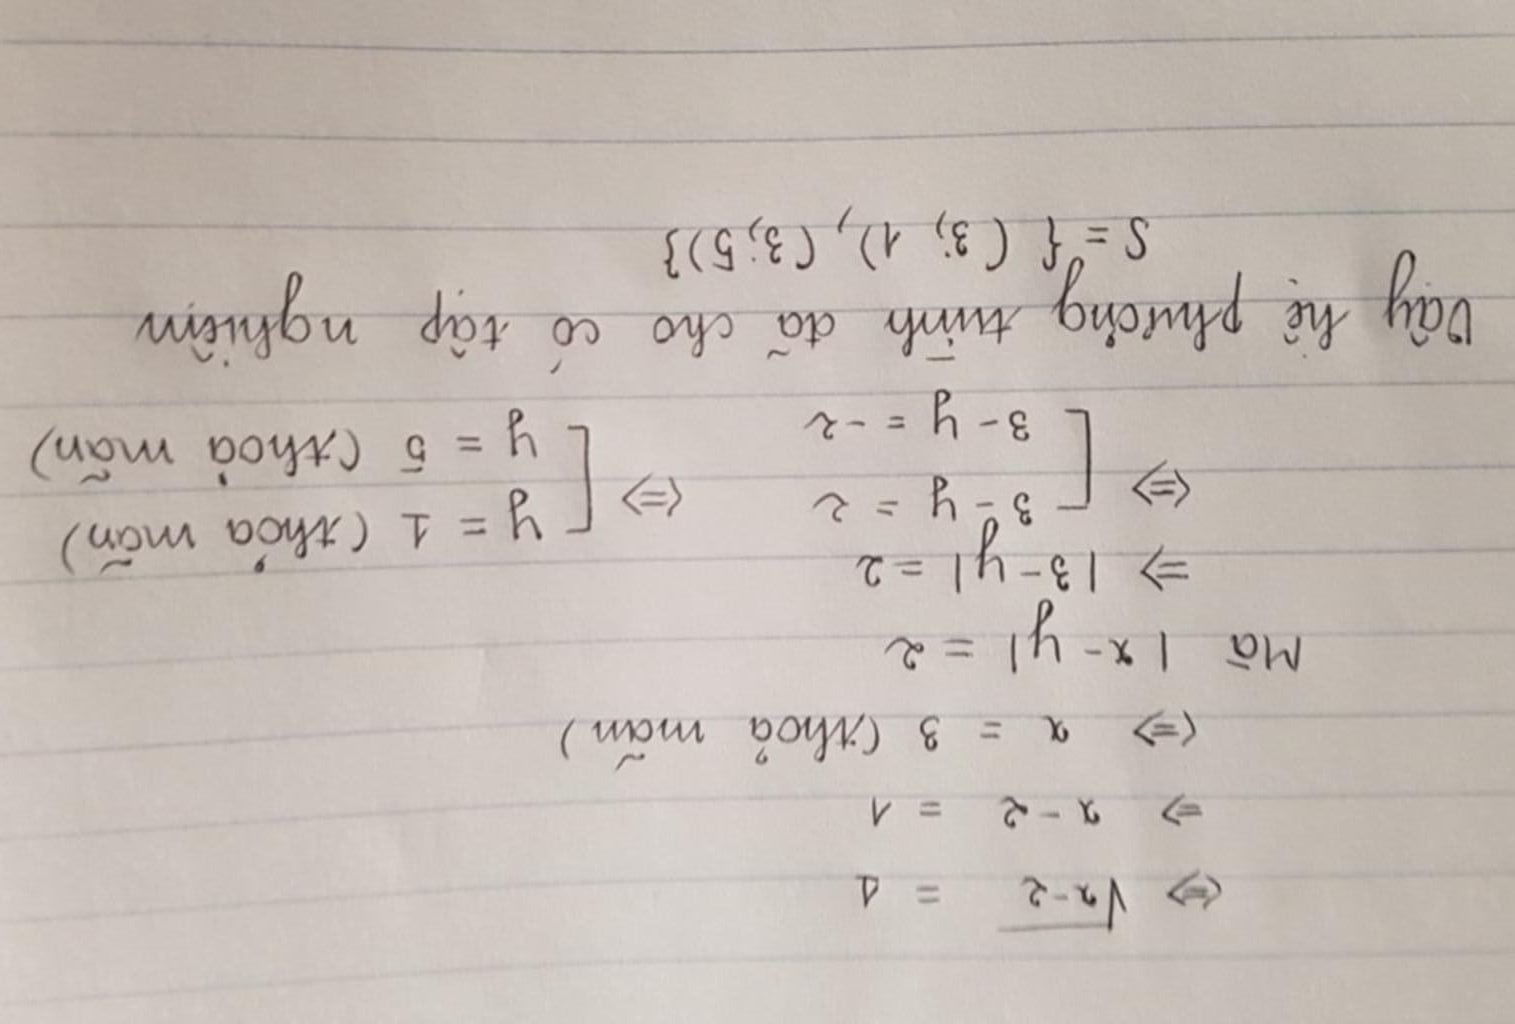 ⇔ √x-2 = 1
⇒ x - 2 = 1
⇔ x = 3 (thoả mãn)
Mà |x - y| = 2
⇒ |3 - y| = 2
⇔ [ 3 - y = 2 ⇔ [ y = 1 (thỏa mãn)
3 - y = -2 y = 5 (thoả mãn)
Vậy hệ phương trình đã cho có tập nghiệm
S = { (3; 1), (3; 5)}